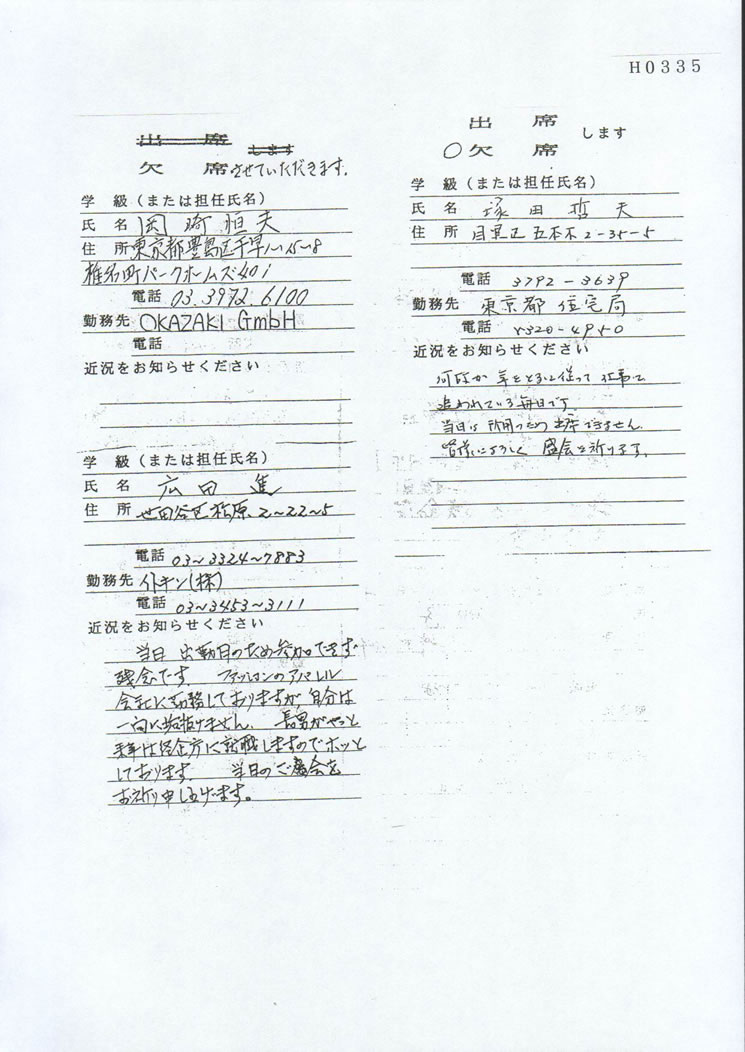 H0335
出席 します
欠席させていただきます.
学 級（または担任氏名）
氏 名 岡崎恒夫
住 所 東京都豊島区千早1〜15〜8
椎名町パークホームズ401
電話 03.3972.6100
勤務先 OKAZAKI GmbH
電話
近況をお知らせください
学 級（または担任氏名）
氏 名 広田 進
住 所 世田谷区松原2〜22〜5
電話 03〜3324〜7883
勤務先 イトキン(株)
電話 03〜3453〜3111
近況をお知らせください
当日 出勤日のため参加できず
残念です ファッションのアパレル
会社に勤務しておりますが,自分は
一向に垢抜けません. 長男がやっと
に就職しますのでホッと
しております. 当日のご盛会を
お祈り申し上げます。
出 席 します
○欠 席
学 級（または担任氏名）
氏 名 塚田哲夫
住 所 目黒区五本木2-35-5
電話 3792-3639
勤務先 東京都住宅局
電話 5320-4950
近況をお知らせください
何故か年をとるに従って仕事に
追われている毎日です.
当日は所用のため出席できません.
皆様によろしく 盛会を祈ります.